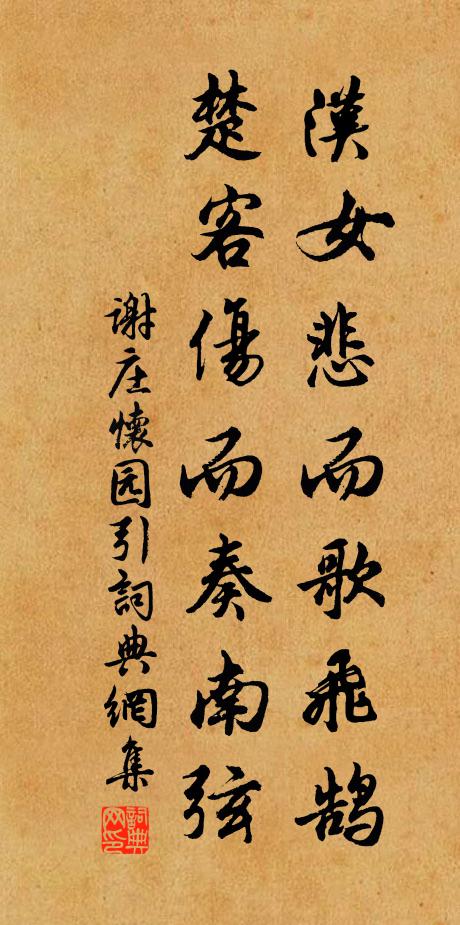 漢女悲而歌飛鵠
楚客傷而奏南弦
谢庄懷园引詞典網集
詞典网印